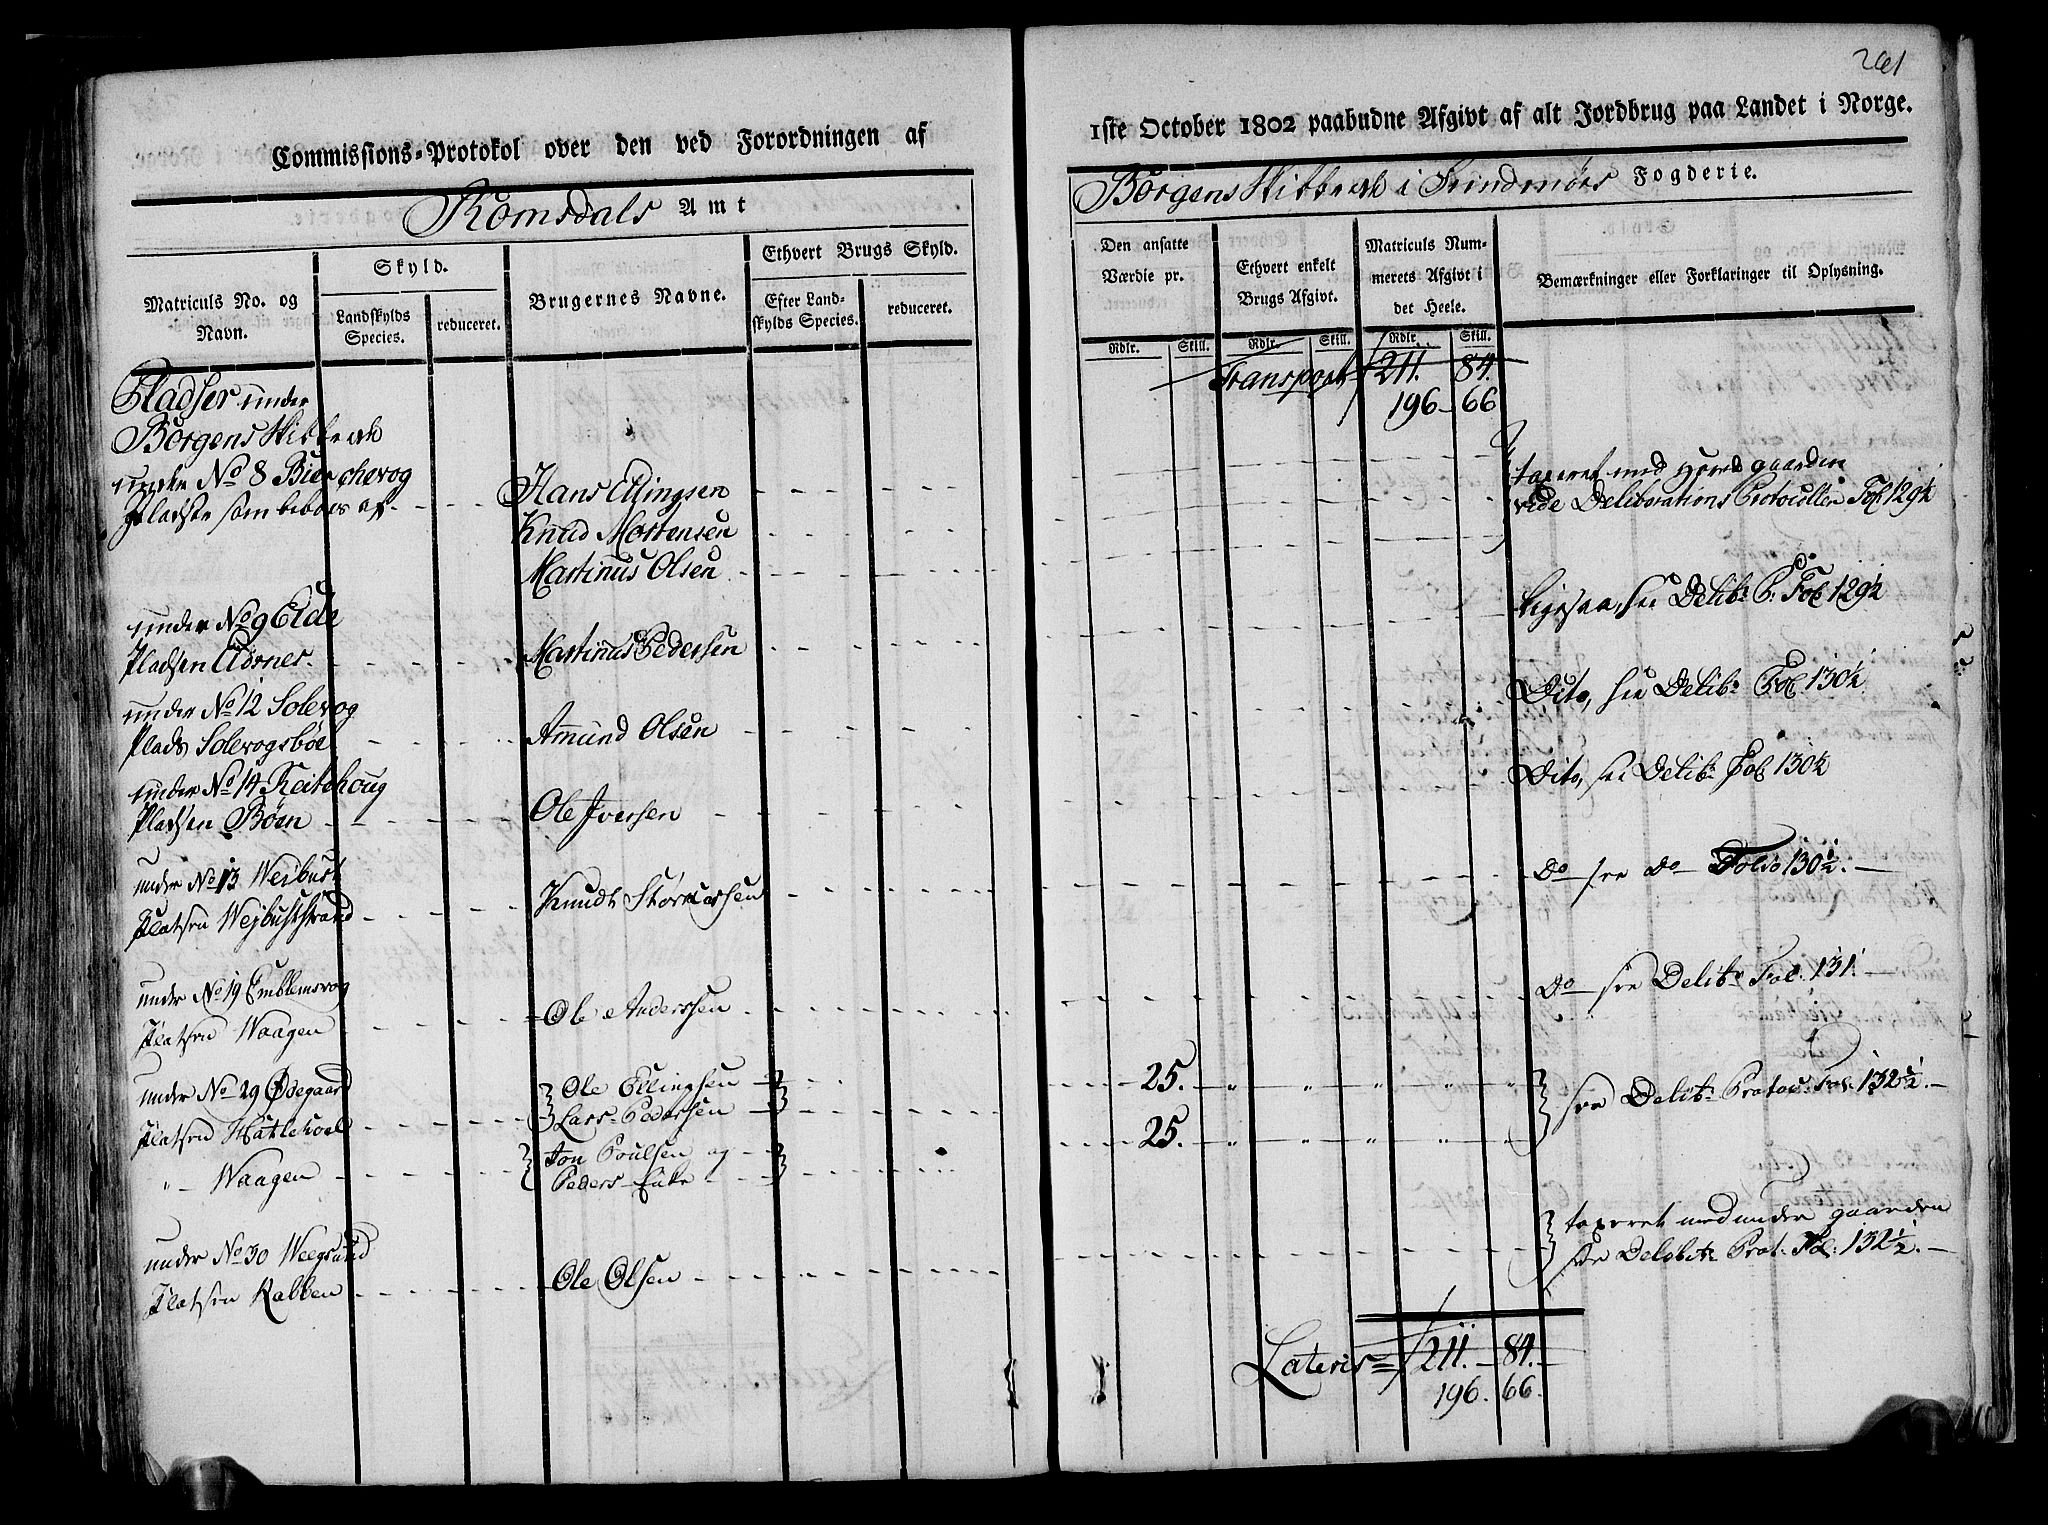 261
Commissions-Protokol over den ved Forordningen af
1ste October 1802 paabudne Afgivt af alt Jordbrug paa Landet i Norge.
Romsdals Amt
Borgens Skibbrede i Sundmørs Fogderie.
Matriculs No. og Navn.
Skyld.
Landskylds Species.
reduceret.
Brugernes Navne.
Ethvert Brugs Skyld.
Efter Landskylds Species.
reduceret.
Den ansatte Værdie pr.
Rdlr. Skill.
Ethvert enkelt Brugs Afgivt.
Rdlr. Skill.
Matriculs Nummerets Afgivt i det Heele.
Rdlr. Skill.
Bemærkninger eller Forklaringer til Oplysning.
Transport 211. 84.
196 66
Pladser under
Borgens Skibbrede
under No 8 Bierchevog
Pladste som beboes af Hans Ellingsen
Knud Mortensen
Martinus Olsen
taxeret med Hovedgaarden
vide Deliberations Protocollen Fol 129½
under No 9 Elde
Pladsen Ednes Martinus Pedersen
ligesaa, see Delib: P: Fol 129½
under No 12 Solevog
Plads Solevogsbøe Amund Olsen
Dito, see Delib: Fol 130½
under No 14 Reitehoug
Pladsen Bøen Ole Iversen
Dito, see Delib: Fol 130½
under No 13 Weibust
Platsen Wejbuststrand Knudt
Do see do Folio 130½.
under No 19 Emblemsvog
Platsen Waagen Ole Anderssen
Do see Delibr Fol: 131.
under No 29 Ødegaard
Platsen Hatlehoel Ole Ellingsen
Lars Pedersen 25. " " " " "
" Waagen Jon Poulsen og
Peders Enke 25. " " " " "
see Delibr: Protoc: Fol. 132½.
under No 30 Weegsund
Platsen Rabben Ole Olsen
taxeret med under gaarden
see Delibr: Prot: Fol: 132½.
Lateris 211. 84.
196. 66.